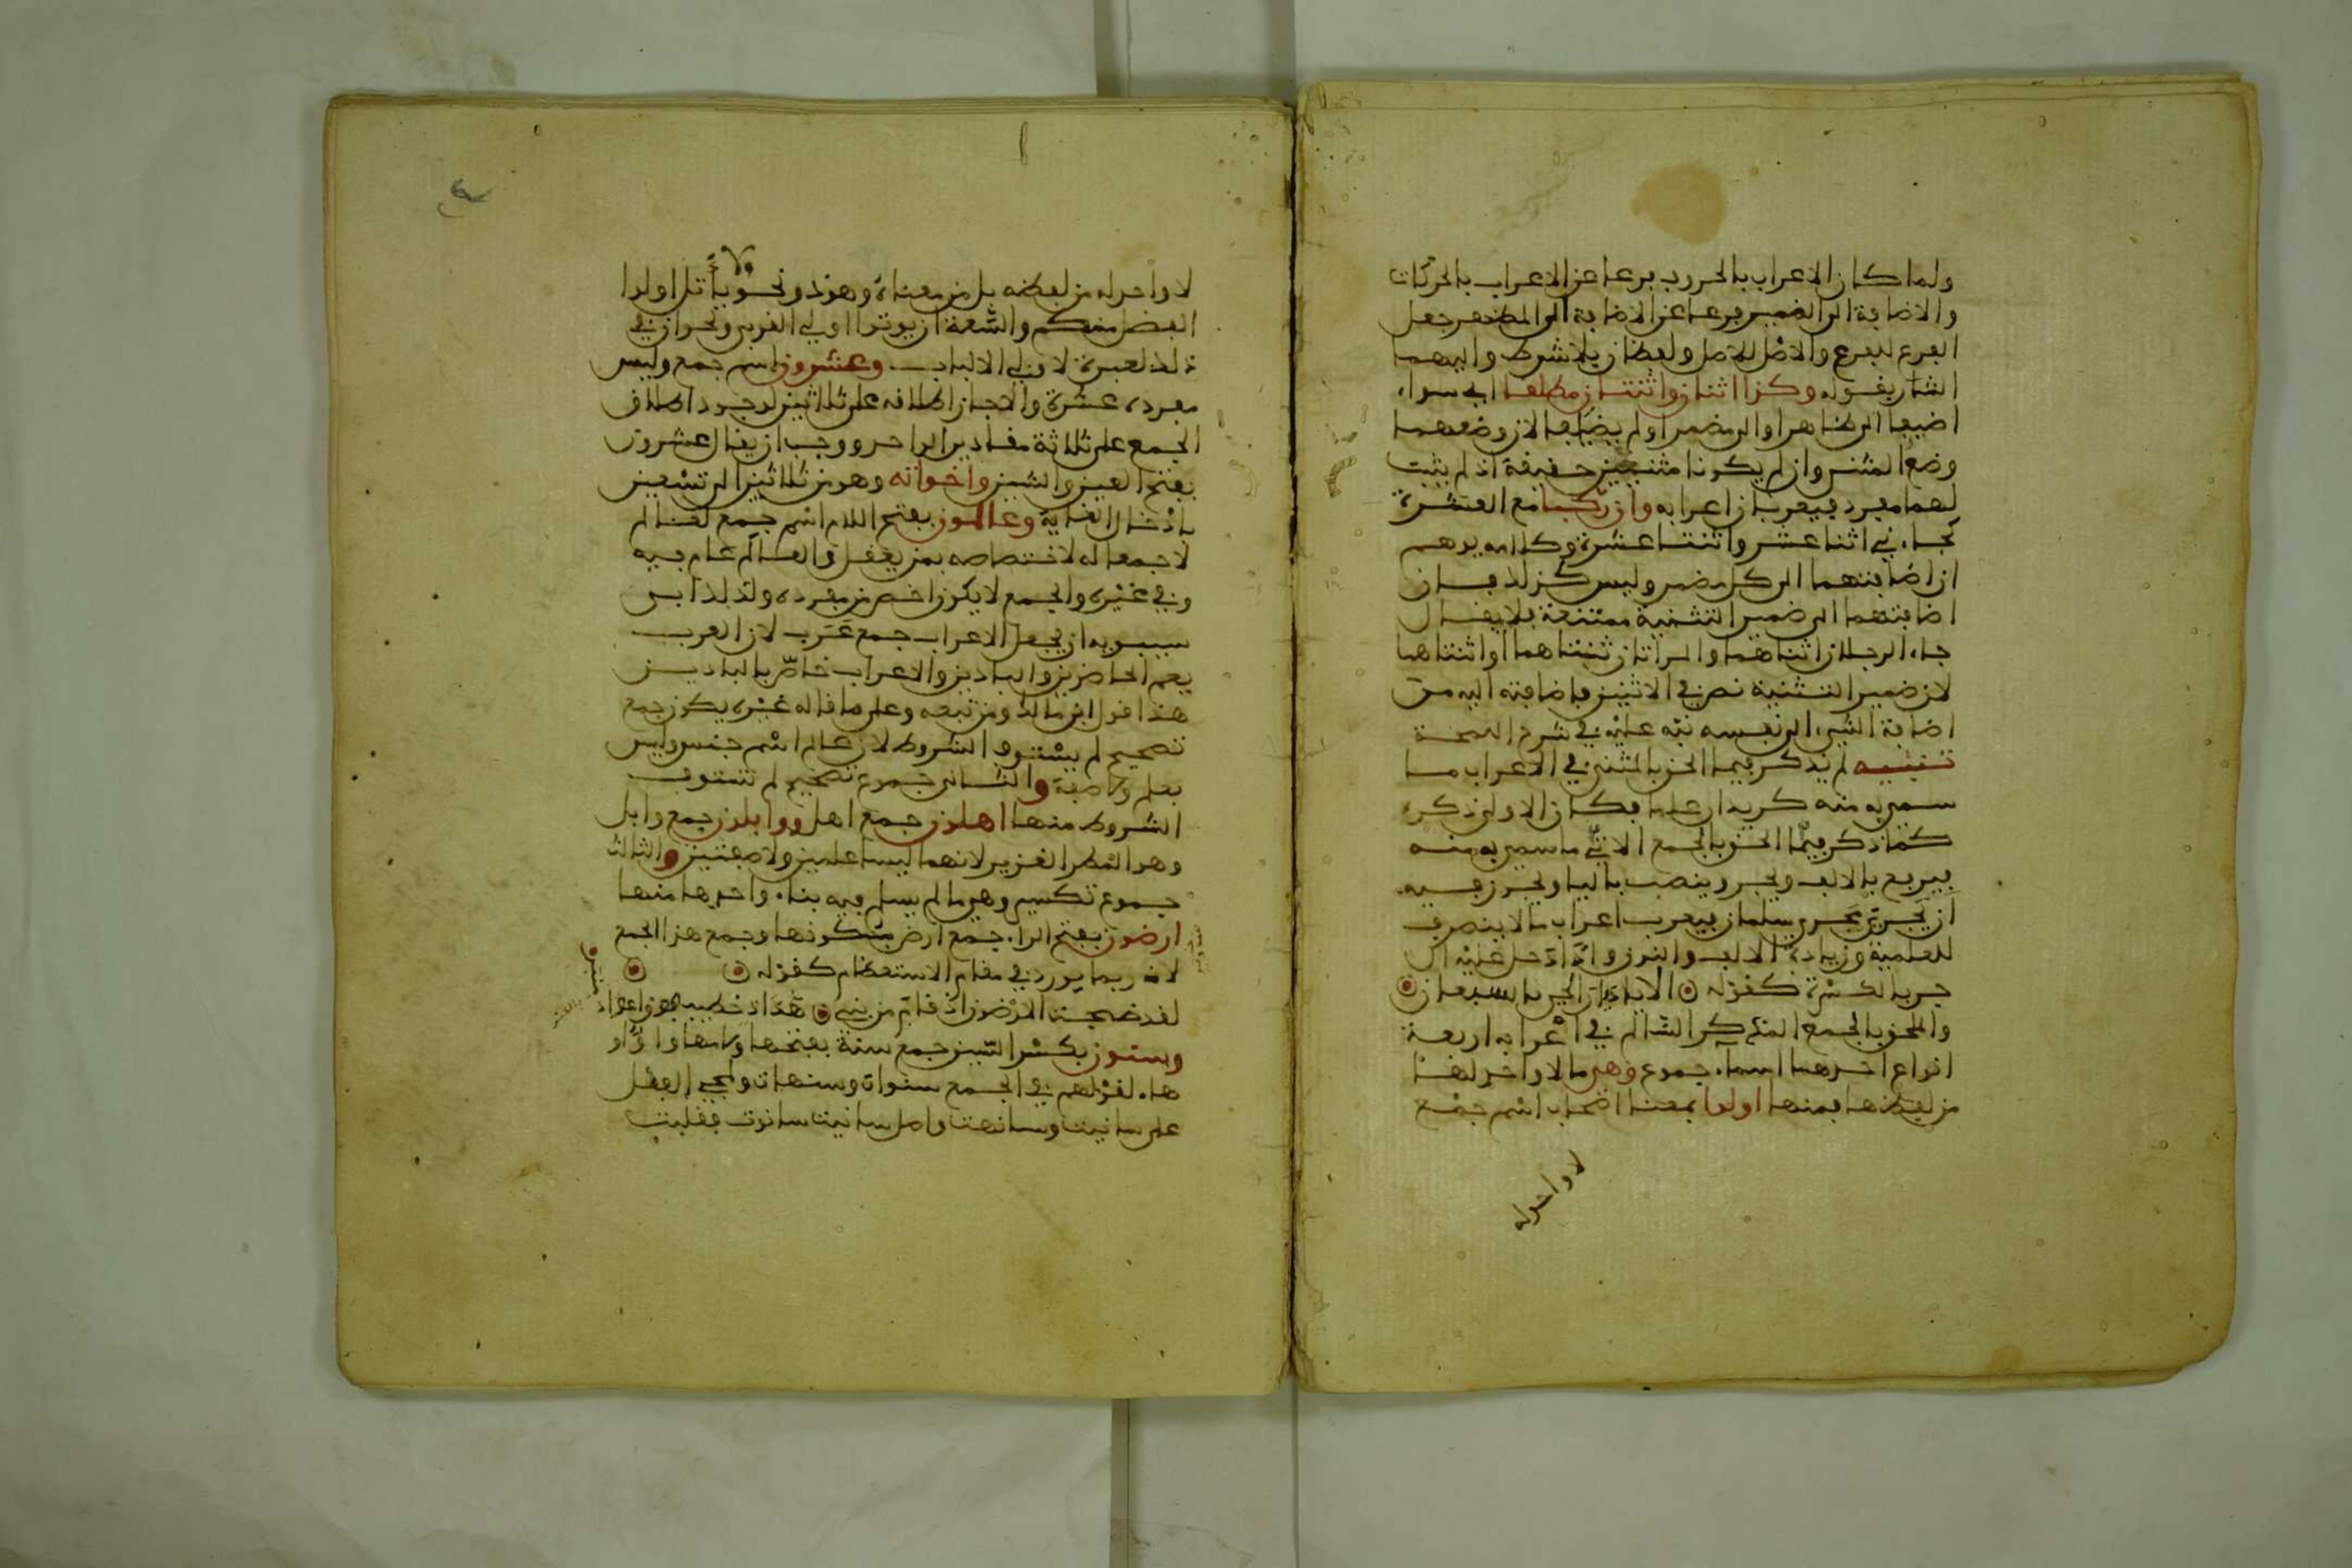 ولما كان الاعراب بالحروف فرعا عن الاعراب بالحركات
والاضافة الى الضمير فرعا عن الاضافة الى المظهر جعل
الفرع للفرع والاصل للاصل ولفظان بلا شرط واليهما
اشار بقوله وكذا اثنان واثنتان مطلقا اي سواء
اضيفا الى ظاهر او الى مضمر او لم يضافا لان وضعهما
وضع المثنى وان لم يكونا مثنيين حقيقة اذ لم يثبت
لهما مفرد فيعربان اعرابه وان ركبا مع العشرة
كجاءني اثنا عشر واثنتا عشرة وكلامه يوهم
ان اضافتهما الى كل مضمر وليس كذلك فان
اضافتهما الى ضمير التثنية ممتنعة فلا يقال
جاء الرجلان اثناهما والمراتان ثنتاهما او اثنتاهما
لان ضمير التثنية نص في الاثنين فاضافته اليه من
اضافة الشيء الى نفسه نبه عليه في شرح اللمحة
تنبيه لم يذكر فيما الحق بالمثنى في الاعراب ما
سمي به منه كزيدان علما فكان الاولى ذكره
كما ذكر فيما الحق بالجمع الاتي ما سمي به منه
فيرفع بالالف ويجر وينصب بالياء ويجوز فيه
ان يجرى مجرى سلمان فيعرب اعراب ما لا ينصرف
للعلمية وزيادة الالف والنون واذا دخل عليه ال
جر بالكسرة كقوله الا يا ديار الحي بالسبعان
والحق بالجمع المذكر السالم في اعرابه اربعة
انواع احدها اسماء جموع وهي ما لا واحد لها
من لفظها فمنها اولوا بمعنى اصحاب اسم جمع
لا واحد له
لا واحد له من لفظه بل من معناه وهو ذو نحو ولا ياتل اولوا
الفضل منكم والسعة ان يوتوا اولي القربى ونحو ان في
ذلك لعبرة لاولي الالباب وعشرون اسم جمع وليس
مفرده عشرة والا لجاز اطلاقه على ثلاثين لوجود اطلاق
الجمع على ثلاثة مقادير الواحد ووجب ان يقال عشرون
بفتح العين والشين واخواته وهو من ثلاثين الى تسعين
بادخال الغاية وعالمون بفتح اللام اسم جمع لعالم
لا جمعا له لاختصاصه بمن يعقل والعالم عام فيه
وفي غيره والجمع لا يكون اخص من مفرده ولذلك ابى
سيبويه ان يجعل الاعراب جمع عرب لان العرب
يعم الحاضرين والبادين والاعراب خاص بالبادين
هذا قول ابن مالك ومن تبعه وعلى ما قاله غيره يكون جمع
تصحيح لم يستوف الشروط لان عالم اسم جنس وليس
بعلم ولا صفة والثاني جموع تصحيح لم تستوف
الشروط منها اهلون جمع اهل ووابلون جمع وابل
وهو المطر الغزير لانهما ليسا علمين ولا صفتين والثالث
جموع تكسير وهي ما لم يسلم فيه بناء واحدها منها
ارضون بفتح الراء جمع ارض بسكونها وجمع هذا الجمع
لانه ربما يورد في مقام الاستعظام كقوله
لقد ضجت الارضون اذ قام من بني هداد خطيب فوق اعواد
وسنون بكسر السين جمع سنة بفتحها ولامها واو او
هاء لقولهم في الجمع سنوات وسنهات ولمجيء الفعل
على سانيت وسانهت واصل سانيت سانوت فقلبت